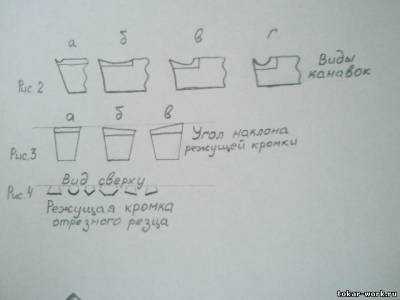 а б в г
Рис 2
Виды
канавок
а б в
Рис.3
Угол наклона
режущей кромки
Рис.4
Вид сверху
Режущая кромка
отрезного резца
tokar-work.ru